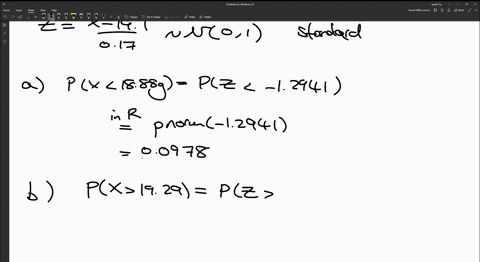 Z = x-19.1 / 0.17 ~ N(0,1) standard
a) P(X<18.88g) = P(Z < -1.2941)
in R
= pnorm(-1.2941)
= 0.0978
b) P(X>19.29) = P(Z >